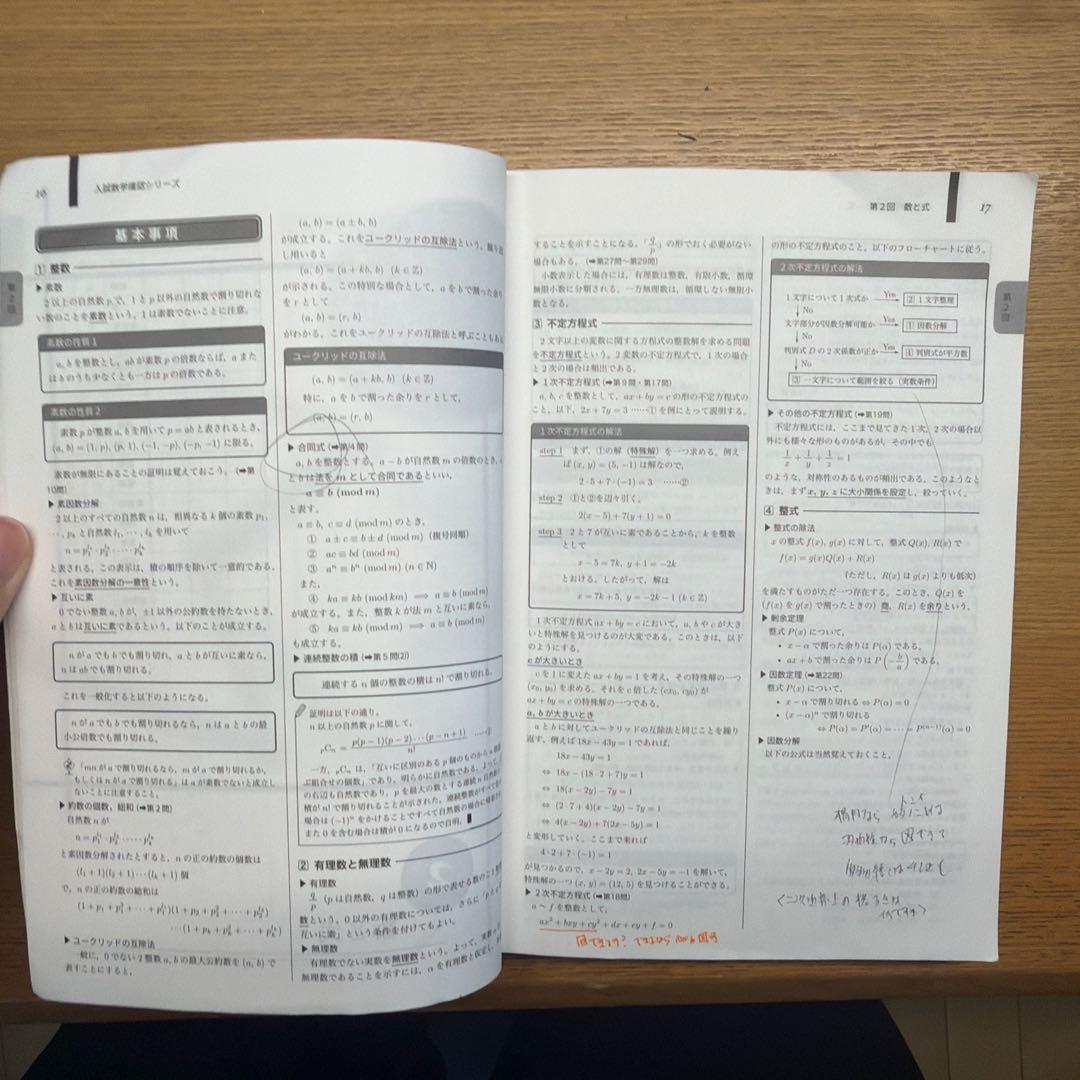 16 入試数学確認シリーズ
基本事項
1 整数
▶素数
2以上の自然数 p で,1と p 以外の自然数で割り切れな
い数のことを素数という。1は素数でないことに注意。
素数の性質1
a, b を整数とし,ab が素数 p の倍数ならば,a また
は b のうち少なくとも一方は p の倍数である。
素数の性質2
素数 p が整数 a, b を用いて p = ab と表されるとき,
(a, b) = (1, p), (p, 1), (−1, −p), (−p, −1) に限る。
素数が無限にあることの証明は覚えておこう。(➡第
10問)
▶素因数分解
2以上のすべての自然数 n は,相異なる k 個の素数 p₁,
…, pₖ と自然数 l₁, …, lₖ を用いて
と表される。この表示は,積の順序を除いて一意的である。
これを素因数分解の一意性という。
▶互いに素
0でない整数 a, b が,±1以外の公約数を持たないとき,
a と b は互いに素であるという。以下のことが成立する。
n が a でも b でも割り切れ,a と b が互いに素なら,
n は ab でも割り切れる。
これを一般化すると以下のようになる。
n が a でも b でも割り切れるなら,n は a と b の最
小公倍数でも割り切れる。
「mn が a で割り切れるなら,m が a で割り切れるか,
もしくは n が a で割り切れる」は a が素数でないと成立し
ないことに注意すること。
▶約数の個数,総和(➡第2問)
自然数 n が
と素因数分解されたとすると,n の正の約数の個数は
(l₁+1)(l₂+1)⋯(lₖ+1) 個
で,n の正の約数の総和は
▶ユークリッドの互除法
一般に,0でない2整数 a, b の最大公約数を (a, b) で
表すことにすると,
(a, b) = (a ± b, b)
が成立する。これをユークリッドの互除法という。繰り返
し用いると
(a, b) = (a + kb, b) (k ∈ ℤ)
が示される。この特別な場合として,a を b で割った余り
を r として
(a, b) = (r, b)
がわかる。これをユークリッドの互除法と呼ぶことも
ユークリッドの互除法
(a, b) = (a + kb, b) (k ∈ ℤ)
特に,a を b で割った余りを r として,
(a, b) = (r, b)
▶合同式(➡第4問)
a, b を整数とする。a − b が自然数 m の倍数のとき,
と b は法を m として合同であるといい,
a ≡ b (mod m)
と表す。
a ≡ b, c ≡ d (mod m) のとき,
① a ± c ≡ b ± d (mod m) (複号同順)
② ac ≡ bd (mod m)
③ aⁿ ≡ bⁿ (mod m) (n ∈ ℕ)
また,
④ ka ≡ kb (mod km) ⟹ a ≡ b (mod m)
が成立する。また,整数 k が法 m と互いに素なら,
⑤ ka ≡ kb (mod m) ⟹ a ≡ b (mod m)
も成立する。
▶連続整数の積(➡第5問(2))
連続する n 個の整数の積は n! で割り切れる。
証明は以下の通り。
n 以上の自然数 p に関して,
ₚCₙ = p(p−1)(p−2)⋯(p−n+1) / n! ……①
一方,ₚCₙ は,「互いに区別のある p 個のものから n 個選
ぶ組合せの個数」であり,明らかに自然数である。よって,
の右辺も自然数であり,p を最大の数とする連続 n 自然数の
積が n! で割り切れることが示された。連続整数がすべて負の
場合は (−1)ⁿ をかけることですべて自然数の場合に帰着
また0を含む場合は積が0になるので自明。
2 有理数と無理数
▶有理数
q/p (p は自然数,q は整数) の形で表せる数のこと
数という。0以外の有理数については,さらに「p と q
互いに素」という条件を付けてもよい。
▶無理数
有理数でない実数を無理数という。よって,実数 α が
無理数であることを示すには,α を有理数と仮定し,
第2回
第2回 数と式 17
することを示すことになる。「q/p」の形でおく必要がない
場合もある。(➡第27問〜第29問)
小数表示した場合には,有理数は整数,有限小数,循環
無限小数に分類される。一方無理数は,循環しない無限小
数となる。
3 不定方程式
2文字以上の変数に関する方程式の整数解を求める問題
を不定方程式という。2変数の不定方程式で,1次の場合
と2次の場合は頻出である。
▶1次不定方程式(➡第9問・第17問)
a, b, c を整数として,ax + by = c の形の不定方程式の
こと。以下,2x + 7y = 3 ……① を例にとって説明する。
1次不定方程式の解法
step 1 まず,①の解(特殊解)を一つ求める。例え
ば (x, y) = (5, −1) は解なので,
2·5 + 7·(−1) = 3 ……②
step 2 ①と②を辺々引く。
2(x − 5) + 7(y + 1) = 0
step 3 2と7が互いに素であることから,k を整数
として
x − 5 = 7k, y + 1 = −2k
とおける。したがって,解は
x = 7k + 5, y = −2k − 1 (k ∈ ℤ)
1次不定方程式 ax + by = c において,a, b や c が大き
いと特殊解を見つけるのが大変である。このときは,以下
のようにする。
c が大きいとき
c を1に変えた ax + by = 1 を考え,その特殊解の一つ
(x₀, y₀) を求める。それを c 倍した (cx₀, cy₀) が
ax + by = c の特殊解の一つである。
a, b が大きいとき
a と b に対してユークリッドの互除法と同じことを繰り
返す。例えば 18x − 43y = 1 であれば,
18x − 43y = 1
⇔ 18x − (18·2 + 7)y = 1
⇔ 18(x − 2y) − 7y = 1
⇔ (2·7 + 4)(x − 2y) − 7y = 1
⇔ 4(x − 2y) + 7(2x − 5y) = 1
と変形していく。ここまで来れば
4·2 + 7·(−1) = 1
が見つかるので,x − 2y = 2, 2x − 5y = −1 を解いて,
特殊解の一つ (x, y) = (12, 5) を見つけることができる。
▶2次不定方程式(➡第18問)
a〜f を整数として,
ax² + bxy + cy² + dx + ey + f = 0
の形の不定方程式のこと。以下のフローチャートに従う。
2次不定方程式の解法
1文字について1次式か Yes 2 1文字整理
No
文字部分が因数分解可能か Yes 1 因数分解
No
判別式 D の2次係数が正か Yes 4 判別式が平方数
No
3 一文字について範囲を絞る(実数条件)
▶その他の不定方程式(➡第19問)
不定方程式には,ここまで見てきた1次,2次の場合以
外にも様々な形のものがあるが,その中でも
1/x + 1/y + 1/z = 1
のような,対称性のあるものが頻出である。このようなと
きは,まず x, y, z に大小関係を設定し,絞っていく。
4 整式
▶整式の除法
x の整式 f(x), g(x) に対して,整式 Q(x), R(x) で
f(x) = g(x)Q(x) + R(x)
(ただし,R(x) は g(x) よりも低次)
を満たすものがただ一つ存在する。このとき,Q(x) を
(f(x) を g(x) で割ったときの) 商,R(x) を余りという。
▶剰余定理
整式 P(x) について,
• x − α で割った余りは P(α) である。
• ax + b で割った余りは P(−b/a) である。
▶因数定理(➡第22問)
整式 P(x) について,
• x − α で割り切れる ⇔ P(α) = 0
• (x − α)ⁿ で割り切れる
⇔ P(α) = P′(α) = ⋯ = P⁽ⁿ⁻¹⁾(α) = 0
▶因数分解
以下の公式は当然覚えておくこと。
第2回